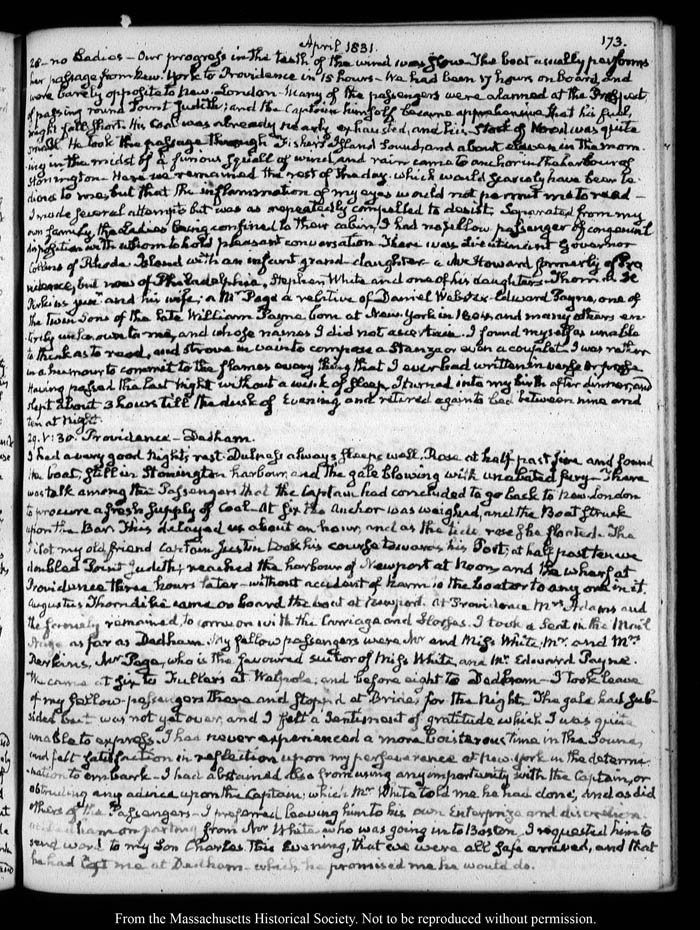 April 1831.
173.
28 – no Ladies – Our progress in the teeth of the wind was slow – The boat usually performs
her passage from New-York to Providence in 15 hours – We had been 17 hours on board, and
were barely opposite to New-London – Many of the passengers were alarmed at the prospect
of passing round Point Judith; and the Captain himself became apprehensive that his fuel
might fall short. His Coal was already nearly exhausted, and his Stock of Wood was quite
small. He took the passage through Fisher's Island Sound, and about eleven in the morn-
ing in the midst of a furious Squall of wind, and rain came to anchor in the harbour of
Stonington – Here we remained the rest of the day. which would scarcely have been te-
dious to me, but that the inflammation of my eyes would not permit me to read –
I made several attempts but was as repeatedly compelled to desist. Separated from my
own family, the Ladies being confined to their cabin, I had no fellow passenger of congenial
disposition with whom to hold pleasant conversation. There was Lieutenant Governor
Collins of Rhode-Island with an infant grand-daughter – a Mr Howard formerly of Pro
vidence, but now of Philadelphia, Stephen White and one of his daughters – Thom.
Perkins junr. and his wife; a Mr Page a relative of Daniel Webster – Edward Payne, one of
the twin Sons of the late William Payne, born at New-York in 1804, and many others en-
tirely unknown to me, and whose names I did not ascertain. I found myself as unable
to think as to read, and strove in vain to compose a Stanza or even a couplet – I was rather
in a humour to commit to the flames every thing that I ever had written in verse or prose.
Having passed the last Night without a wink of sleep, I turned into my birth after dinner, and
slept about 3 hours till the dusk of Evening, and retired again to bed between nine and
ten at Night.
29. V: 30. Providence – Dedham.
I had a very good Night's rest. Dulness always sleeps well. Rose at half past five and found
the boat, still in Stonington harbour, and the gale blowing with unabated fury – There
was talk among the Passengers that the Captain had concluded to go back to New London
to procure a fresh supply of Coal – At six the Anchor was weighed, and the Boat struck
upon the Bar. This delayed us about an hour, and as the tide rose she floated. The
Pilot my old friend Captain Justin took his course towards his Post; at half past ten we
doubled Point Judith; reached the harbour of Newport at Noon, and the wharf at
Providence three hours later – without accident or harm to the boat or to any one in it.
Augustus Thorndike came on board the boat at Newport. At Providence Mrs Adams and
the family remained, to come on with the Carriage and Horses. I took a Seat in the Mail
Stage as far as Dedham. My fellow passengers were Mr and Miss White, Mr. and Mrs
Perkins, Mr Page, who is the favoured suitor of Miss White, and Mr Edward Payne.
We came at six to Fullers at Walpole; and before eight to Dedham – I took leave
of my fellow-passengers there and stopped at Brides for the Night. The gale had sub-
sided but was not yet over, and I felt a Sentiment of gratitude which I was quite
unable to express. I have never experienced a more boisterous time in the Sound,
and felt satisfaction in reflection upon my perseverance at New York in the determi-
nation to embark – I had abstained also from using any importunity with the Captain, or
obtruding any advice upon the Captain; which Mr White told me he had done, and as did
others of the Passengers – I preferred leaving him to his own Enterprize and discretion.
at Dedham on parting from Mr White who was going in to Boston, I requested him to
send word to my Son Charles this Evening, that we were all safe arrived, and that
he had left me at Dedham – which he promised me he would do.
From the Massachusetts Historical Society. Not to be reproduced without permission.